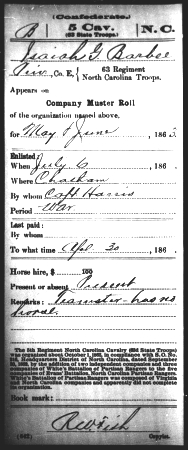 (Confederate.)
B 5 Cav. N.C.
(63 State Troops.)
Isaiah G. Barbee
Pvt, Co. E, 63 Regiment
North Carolina Troops.
Appears on
Company Muster Roll
of the organization named above,
for May & June, 1863.
Enlisted:
When July 6, 186
Where Chatham
By whom Capt Harris
Period War
Last paid:
By whom
To what time Apl 30, 186
Horse hire, $ 100
Present or absent Present
Remarks: Teamster has no
horse.
The 5th Regiment North Carolina Cavalry (63d State Troops)
was organized about October 1, 1862, in compliance with S. O. No.
Headquarters Department of North Carolina, dated September
by the addition of two independent companies and three
companies of White's Battalion of Partisan Rangers to the five
companies of Evans' Battalion, North Carolina Partisan Rangers.
White's Battalion Partisan Rangers was composed of Virginia
and North Carolina companies and apparently did not complete
its organization.
Book mark:
(642) Copyist.